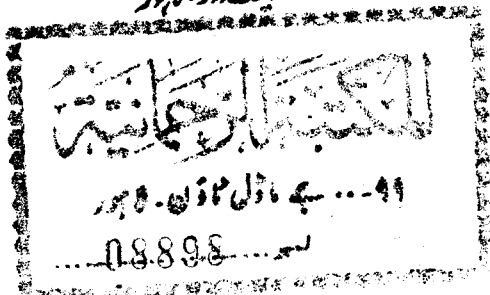 المكتبة الرحمانية
۹۹... جے ماڈل ٹاؤن - لاہور
نمبر....08898....